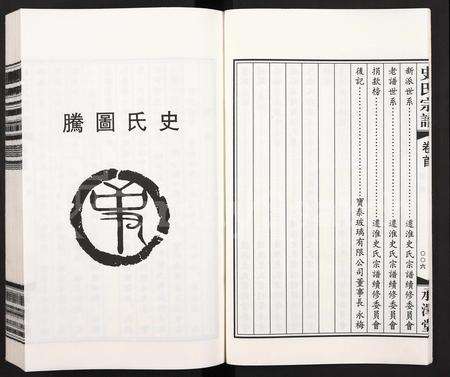 史氏宗譜
卷首
〇〇六
承澤堂
新派世系……………遷淮史氏宗譜續修委員會
老譜世系……………遷淮史氏宗譜續修委員會
捐款榜……………遷淮史氏宗譜續修委員會
後記……………寶泰玻璃有限公司董事長 永梅
騰圖氏史